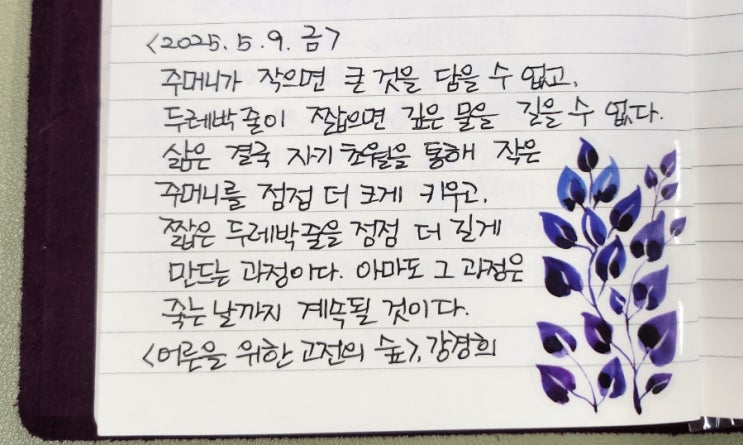 <2025. 5. 9. 금>
주머니가 작으면 큰 것을 담을 수 없고,
두레박 줄이 짧으면 깊은 물을 길을 수 없다.
삶은 결국 자기 초월을 통해 작은
주머니를 점점 더 크게 키우고,
짧은 두레박 줄을 점점 더 길게
만드는 과정이다. 아마도 그 과정은
죽는 날까지 계속될 것이다.
<어른을 위한 고전의 숲>, 강경희